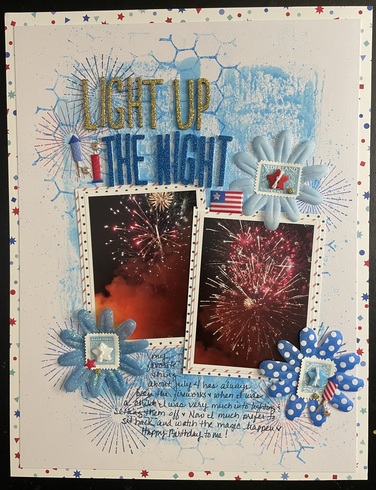 LIGHT UP
THE NIGHT
my
favorite
thing
about July 4 has always
been the fireworks ♥ when I was
a child I was very much into lighting
setting them off ♥ Now I much prefer to
sit back and watch the magic happen ♥
Happy Birthday to me!